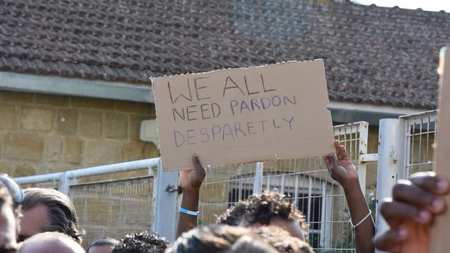 WE ALL
NEED PARDON
DESPARETLY